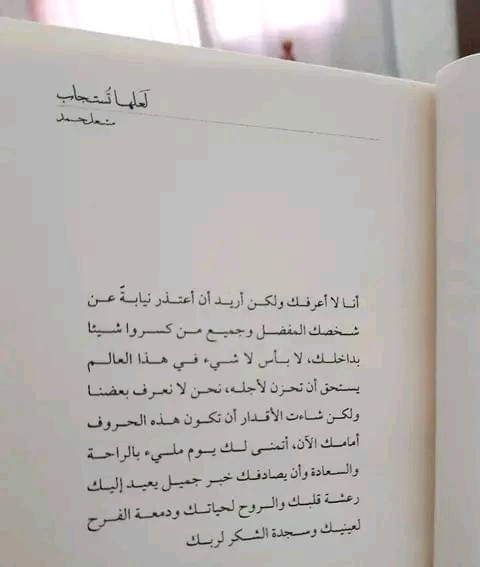 لعلها تُستجاب
مشعل حمد
أنا لا أعرفك ولكن أريد أن أعتذر نيابةً عن
شخصك المفضل وجميع من كسروا شيئا
بداخلك، لا بأس لا شيء في هذا العالم
يستحق أن تحزن لأجله، نحن لا نعرف بعضنا
ولكن شاءت الأقدار أن تكون هذه الحروف
أمامك الآن، أتمنى لك يوم مليء بالراحة
والسعادة وأن يصادفك خبر جميل يعيد إليك
رعشة قلبك والروح لحياتك ودمعة الفرح
لعينيك وسجدة الشكر لربك